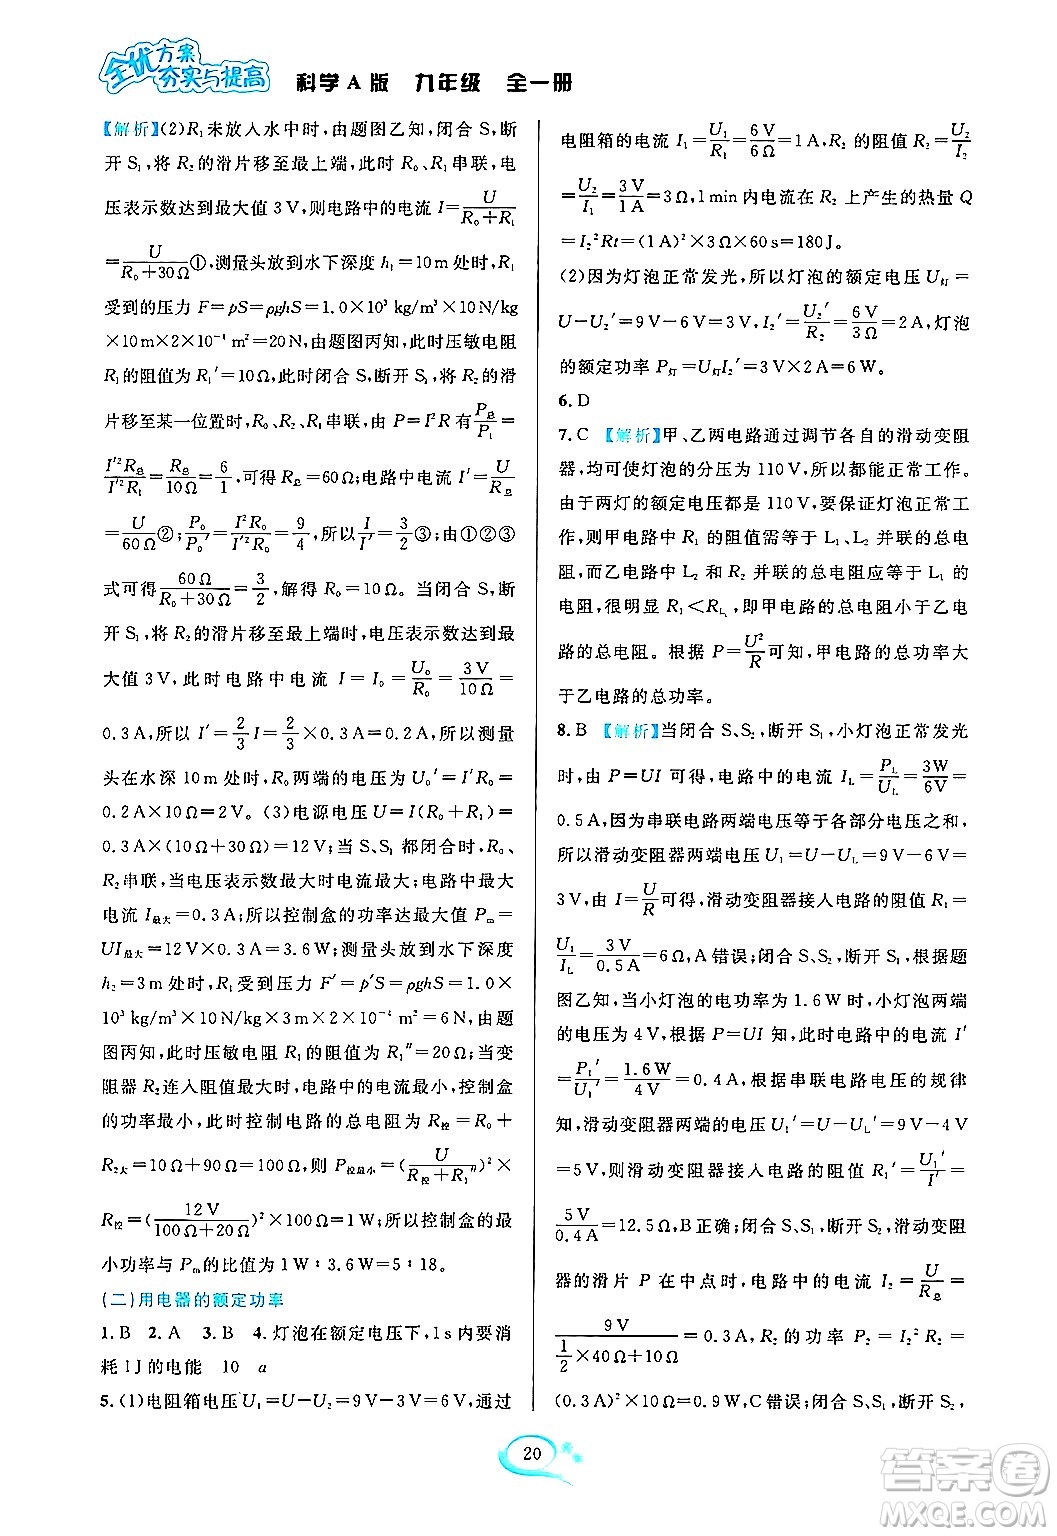 全优方案
夯实与提高
科学A版 九年级 全一册
【解析】(2)R₁未放入水中时,由题图乙知,闭合S,断
开S₁,将R₂的滑片移至最上端,此时R₀、R₁串联,电
压表示数达到最大值3V,则电路中的电流I=U/(R₀+R₁)
=U/(R₀+30Ω)①,测量头放到水下深度h₁=10m处时,R₁
受到的压力F=pS=ρghS=1.0×10³kg/m³×10N/kg
×10m×2×10⁻⁴m²=20N,由题图丙知,此时压敏电阻
R₁的阻值为R₁′=10Ω,此时闭合S,断开S₁,将R₂的滑
片移至某一位置时,R₀、R₂、R₁串联,由P=I²R有P总/P₁=
I′²R总/I′²R₁=R总/10Ω=6/1,可得R总=60Ω;此时电路中电流I′=U/R总
=U/60Ω②;P₀/P₀′=I²R₀/I′²R₀=9/4,所以I/I′=3/2③;由①②③
式可得60Ω/(R₀+30Ω)=3/2,解得R₀=10Ω。当闭合S,断
开S₁,将R₂的滑片移至最上端时,电压表示数达到最
大值3V,此时电路中电流I=I₀=U₀/R₀=3V/10Ω=
0.3A,所以I′=2/3I=2/3×0.3A=0.2A,所以测量
头在水深10m处时,R₀两端的电压为U₀′=I′R₀=
0.2A×10Ω=2V。(3)电源电压U=I(R₀+R₁)=
0.3A×(10Ω+30Ω)=12V;当S、S₁都闭合时,R₀、
R₂串联,当电压表示数最大时电流最大;电路中最大
电流I最大=0.3A;所以控制盒的功率达最大值Pm=
UI最大=12V×0.3A=3.6W;测量头放到水下深度
h₂=3m处时,R₁受到的压力F′=p′S=ρghS=1.0×
10³kg/m³×10N/kg×3m×2×10⁻⁴m²=6N,由题
图丙知,此时压敏电阻R₁的阻值为R₁″=20Ω;当变
阻器R₂连入阻值最大时,电路中的电流最小,控制盒
的功率最小,此时控制电路的总电阻为R控=R₀+
R₂大=10Ω+90Ω=100Ω,则P控最小=(U/(R控+R₁″))²×
R控=(12V/(100Ω+20Ω))²×100Ω=1W;所以控制盒的最
小功率与Pm的比值为1W∶3.6W=5∶18。
(二)用电器的额定功率
1.B 2.A 3.B 4.灯泡在额定电压下,1s内要消
耗1J的电能 10 a
5.(1)电阻箱电压U₁=U-U₂=9V-3V=6V,通过
电阻箱的电流I₁=U₁/R₁=6V/6Ω=1A,R₂的阻值R₂=U₂/I₂
=U₂/I₁=3V/1A=3Ω,1min内电流在R₂上产生的热量Q
=I₂²Rt=(1A)²×3Ω×60s=180J。
(2)因为灯泡正常发光,所以灯泡的额定电压U灯=
U-U₂′=9V-6V=3V,I₂′=U₂′/R₂=6V/3Ω=2A,灯泡
的额定功率P灯=U灯I₂′=3V×2A=6W。
6.D
7.C 【解析】甲、乙两电路通过调节各自的滑动变阻
器,均可使灯泡的分压为110V,所以都能正常工作。
由于两灯的额定电压都是110V,要保证灯泡正常工
作,则甲电路中R₁的阻值需等于L₁、L₂并联的总电
阻,而乙电路中L₂和R₂并联的总电阻应等于L₁的
电阻,很明显R₁<R_L,即甲电路的总电阻小于乙电
路的总电阻。根据P=U²/R可知,甲电路的总功率大
于乙电路的总功率。
8.B 【解析】当闭合S、S₂,断开S₁,小灯泡正常发光
时,由P=UI可得,电路中的电流I_L=P_L/U_L=3W/6V=
0.5A,因为串联电路两端电压等于各部分电压之和,
所以滑动变阻器两端电压U₁=U-U_L=9V-6V=
3V,根据I=U/R可得,滑动变阻器接入电路的阻值R₁=
U₁/I_L=3V/0.5A=6Ω,A错误;闭合S、S₂,断开S₁,根据题
图乙知,当小灯泡的电功率为1.6W时,小灯泡两端
的电压为4V,根据P=UI知,此时电路中的电流I′
=P₁′/U₁′=1.6W/4V=0.4A,根据串联电路电压的规律
知,滑动变阻器两端的电压U₁′=U-U_L′=9V-4V
=5V,则滑动变阻器接入电路的阻值R₁′=U₁′/I′=
5V/0.4A=12.5Ω,B正确;闭合S、S₁,断开S₂,滑动变阻
器的滑片P在中点时,电路中的电流I₂=U/R总=
9V/(1/2×40Ω+10Ω)=0.3A,R₂的功率P₂=I₂²R₂=
(0.3A)²×10Ω=0.9W,C错误;闭合S、S₁,断开S₂,
20
答案圈
MXQE.COM